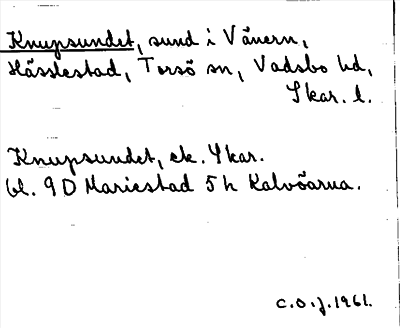 Knupsundet, sund i Vänern,
Hässlestad, Torsö sn, Vadsbo hd,
Skar. l.
Knupsundet, ek. Skar.
bl. 9D Mariestad 5 h Kalvöarna.
C.O.J. 1961.